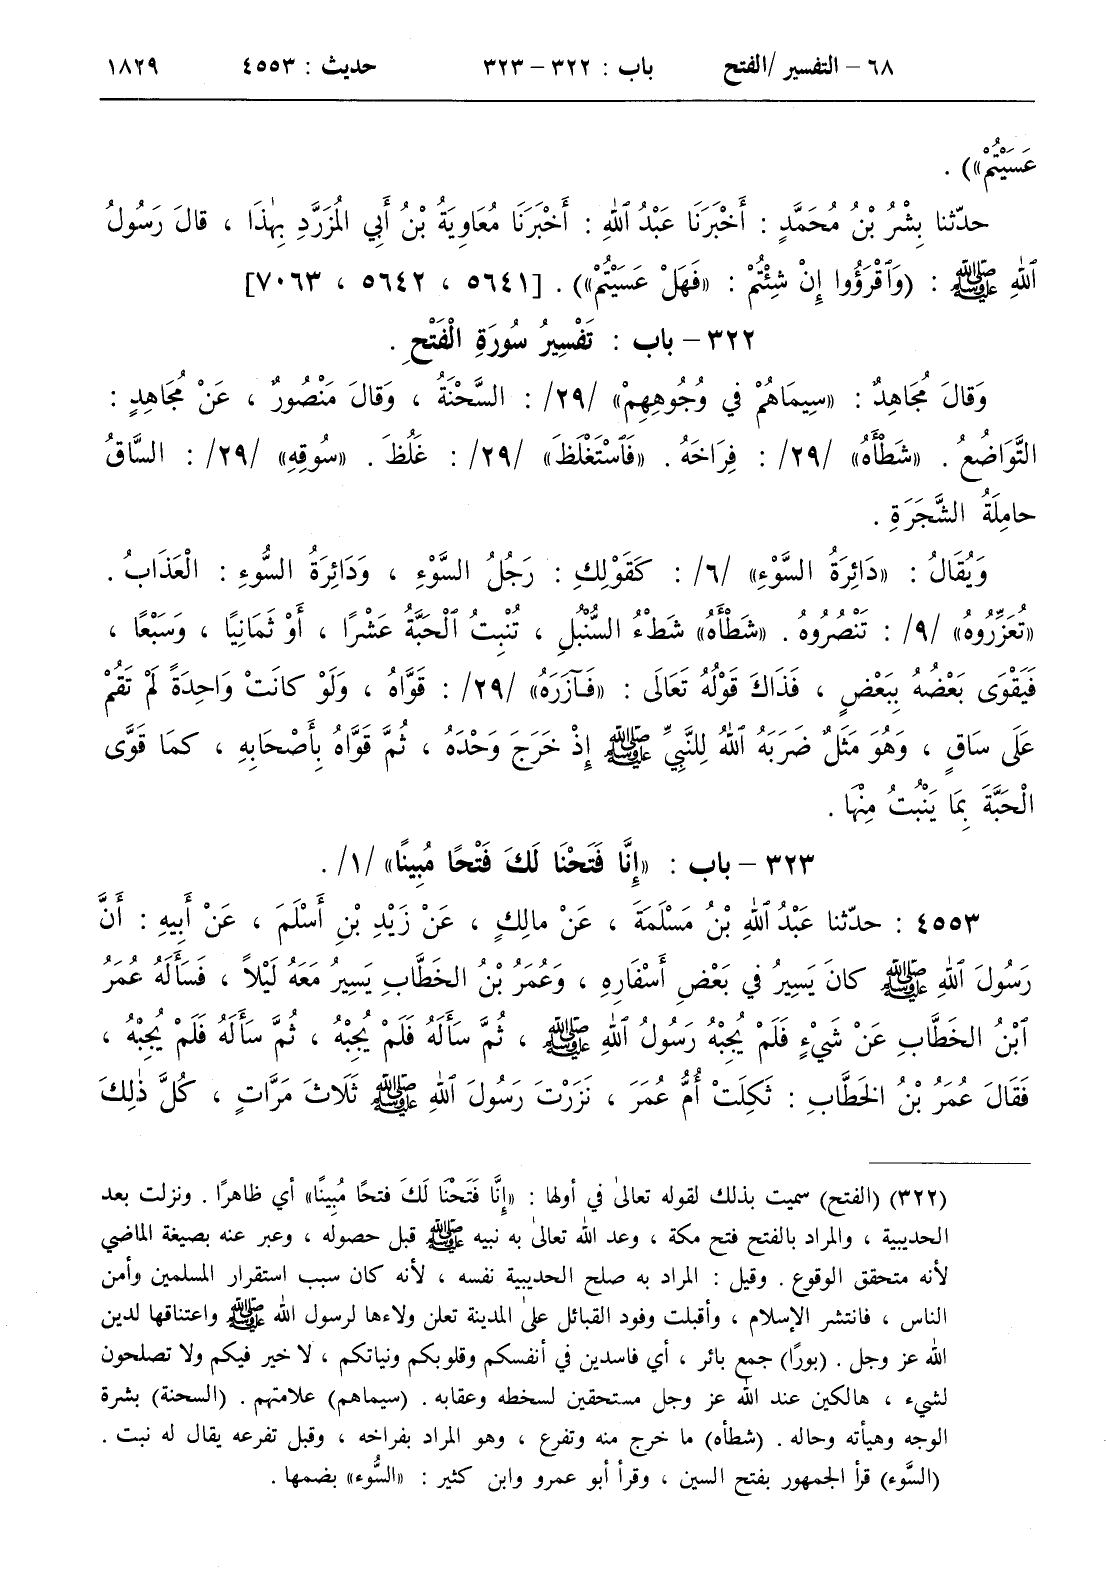 ٦٨ – التفسير /الفتح باب : ٣٢٢ – ٣٢٣ حديث : ٤٥٥٣ ١٨٢٩
عَسَيْتُمْ») .
حدّثنا بِشْرُ بْنُ مُحَمَّدٍ : أَخْبَرَنَا عَبْدُ ٱللهِ : أَخْبَرَنَا مُعَاوِيَةُ بْنُ أَبِي المُزَرَّدِ بِهٰذَا ، قالَ رَسُولُ
ٱللهِ ﷺ : (وَٱقْرَؤُوا إِنْ شِئْتُمْ : «فَهَلْ عَسَيْتُمْ») . [٥٦٤١ ، ٥٦٤٢ ، ٧٠٦٣]
٣٢٢ – باب : تَفْسِيرُ سُورَةِ الْفَتْحِ .
وَقالَ مُجَاهِدٌ : «سِيمَاهُمْ فِي وُجُوهِهِمْ» /٢٩/ : السَّحْنَةُ ، وَقالَ مَنْصُورٌ ، عَنْ مُجَاهِدٍ :
التَّوَاضُعُ . «شَطْأَهُ» /٢٩/ : فِرَاخَهُ . «فَٱسْتَغْلَظَ» /٢٩/ : غَلُظَ . «سُوقِهِ» /٢٩/ : السَّاقُ
حامِلَةُ الشَّجَرَةِ .
وَيُقَالُ : «دَائِرَةُ السَّوْءِ» /٦/ : كَقَوْلِكِ : رَجُلُ السَّوْءِ ، وَدَائِرَةُ السُّوءِ : الْعَذَابُ .
«تُعَزِّرُوهُ» /٩/ : تَنْصُرُوهُ . «شَطْأَهُ» شَطْءُ السُّنْبُلِ ، تُنْبِتُ ٱلْحَبَّةُ عَشْرًا ، أَوْ ثَمَانِيًا ، وَسَبْعًا ،
فَيَقْوَى بَعْضُهُ بِبَعْضٍ ، فَذَاكَ قَوْلُهُ تَعَالَى : «فَآزَرَهُ» /٢٩/ : قَوَّاهُ ، وَلَوْ كانَتْ وَاحِدَةً لَمْ تَقُمْ
عَلَى سَاقٍ ، وَهُوَ مَثَلٌ ضَرَبَهُ ٱللهُ لِلنَّبِيِّ ﷺ إِذْ خَرَجَ وَحْدَهُ ، ثُمَّ قَوَّاهُ بِأَصْحَابِهِ ، كمَا قَوَّى
الْحَبَّةَ بِمَا يَنْبُتُ مِنْهَا .
٣٢٣ – باب : «إِنَّا فَتَحْنَا لَكَ فَتْحًا مُبِينًا» /١/ .
٤٥٥٣ : حدّثنا عَبْدُ ٱللهِ بْنُ مَسْلَمَةَ ، عَنْ مالِكٍ ، عَنْ زَيْدِ بْنِ أَسْلَمَ ، عَنْ أَبِيهِ : أَنَّ
رَسُولَ ٱللهِ ﷺ كانَ يَسِيرُ فِي بَعْضِ أَسْفَارِهِ ، وَعُمَرُ بْنُ الخَطَّابِ يَسِيرُ مَعَهُ لَيْلاً ، فَسَأَلَهُ عُمَرُ
ٱبْنُ الخَطَّابِ عَنْ شَيْءٍ فَلَمْ يُجِبْهُ رَسُولُ ٱللهِ ﷺ ، ثُمَّ سَأَلَهُ فَلَمْ يُجِبْهُ ، ثُمَّ سَأَلَهُ فَلَمْ يُجِبْهُ ،
فَقَالَ عُمَرُ بْنُ الخَطَّابِ : ثَكِلَتْ أُمُّ عُمَرَ ، نَزَرْتَ رَسُولَ ٱللهِ ﷺ ثَلَاثَ مَرَّاتٍ ، كُلَّ ذٰلِكَ
(٣٢٢) (الفتح) سميت بذلك لقوله تعالىٰ في أولها : «إِنَّا فَتَحْنَا لَكَ فتحًا مُبِينًا» أي ظاهرًا . ونزلت بعد
الحديبية ، والمراد بالفتح فتح مكة ، وعد الله تعالىٰ به نبيه ﷺ قبل حصوله ، وعبر عنه بصيغة الماضي
لأنه متحقق الوقوع . وقيل : المراد به صلح الحديبية نفسه ، لأنه كان سبب استقرار المسلمين وأمن
الناس ، فانتشر الإسلام ، وأقبلت وفود القبائل علىٰ المدينة تعلن ولاءها لرسول الله ﷺ واعتناقها لدين
الله عز وجل . (بورًا) جمع بائر ، أي فاسدين في أنفسكم وقلوبكم ونياتكم ، لا خير فيكم ولا تصلحون
لشيء ، هالكين عند الله عز وجل مستحقين لسخطه وعقابه . (سيماهم) علامتهم . (السحنة) بشرة
الوجه وهيأته وحاله . (شطأه) ما خرج منه وتفرع ، وهو المراد بفراخه ، وقبل تفرعه يقال له نبت .
(السَّوء) قرأ الجمهور بفتح السين ، وقرأ أبو عمرو وابن كثير : «السُّوء» بضمها .